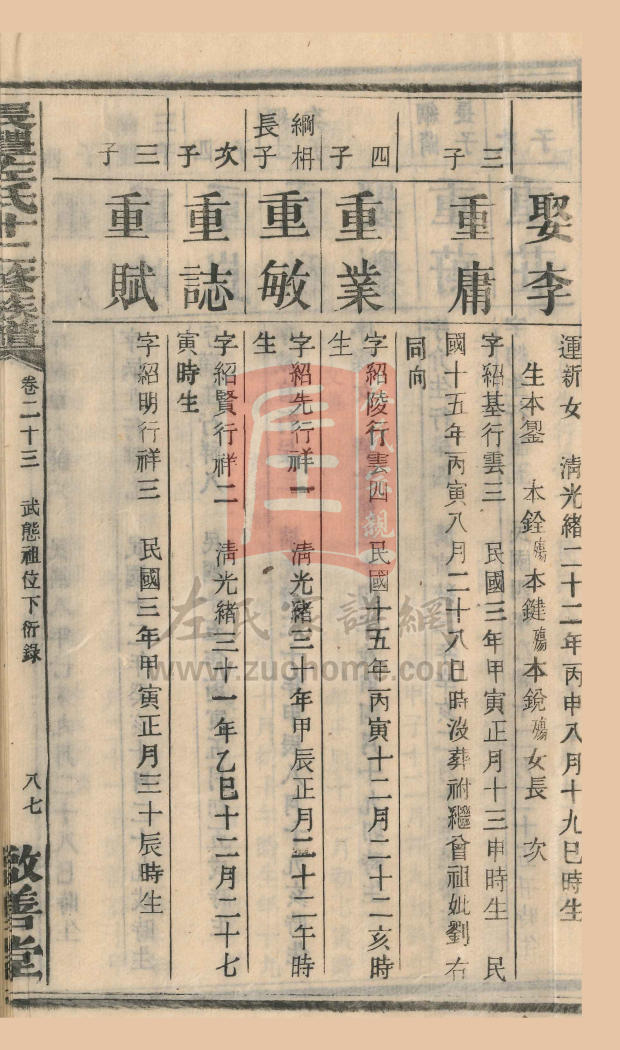 娶李
運新女 清光緒二十二年丙申八月十九巳時生
生本鋆 本銓殤本鍵殤本銳殤女長 次
三子
重庸
字紹基行雲三 民國三年甲寅正月十三申時生 民
國十五年丙寅八月二十八巳時沒葬祔繼曾祖妣劉右
同向
四子
重業
字紹陵行雲四 民國十五年丙寅十二月二十二亥時
生
綱枏長子
重敏
字紹先行祥一 清光緒三十年甲辰正月二十二午時
生
次子
重誌
字紹賢行祥二 清光緒三十一年乙巳十二月二十七
寅時生
三子
重賦
字紹明行祥三 民國三年甲寅正月三十辰時生
長豊左氏十二修族譜
卷二十三 武態祖位下衍錄 八七
敬善堂
左氏家譜網
www.zuohome.com